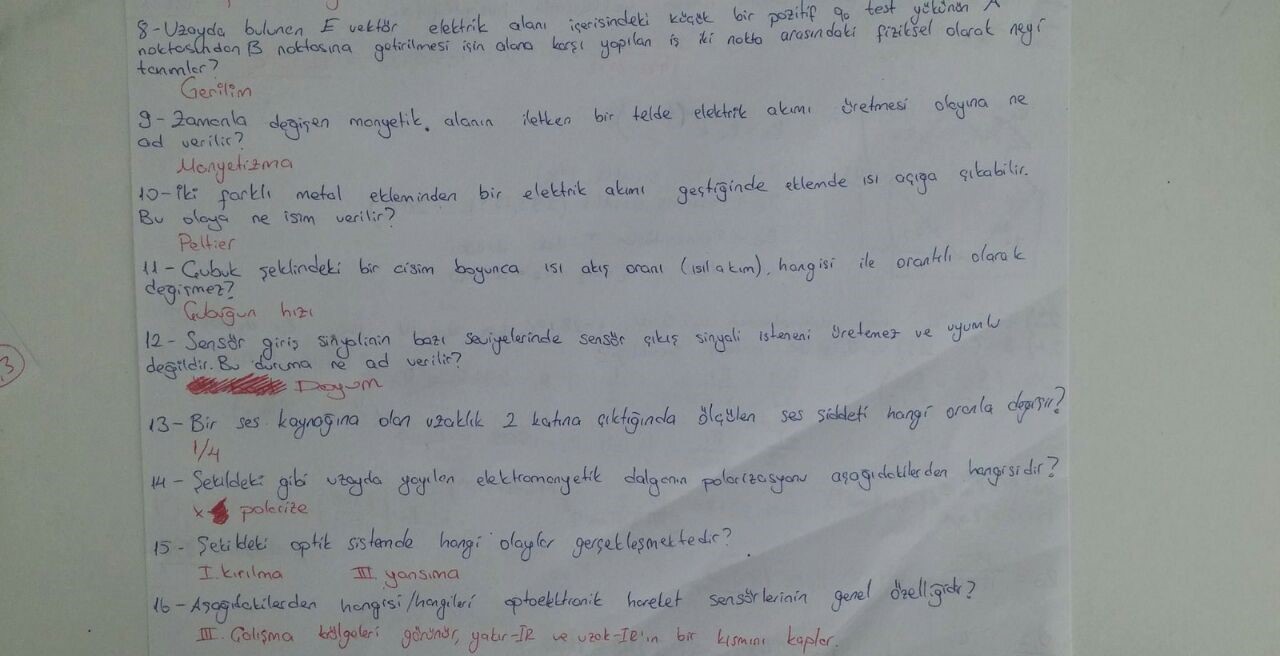 8-Uzayda bulunan E vektör elektrik alanı içerisindeki küçük bir pozitif q₀ test yükünün A
noktasından B noktasına getirilmesi için alana karşı yapılan iş iki nokta arasındaki fiziksel olarak neyi
tanımlar?
Gerilim
9-Zamanla değişen manyetik alanın iletken bir telde elektrik akımı üretmesi olayına ne
ad verilir?
Manyetizma
10-İki farklı metal ekleminden bir elektrik akımı geçtiğinde eklemde ısı açığa çıkabilir.
Bu olaya ne isim verilir?
Peltier
11-Çubuk şeklindeki bir cisim boyunca ısı akış oranı (ısıl akım), hangisi ile orantılı olarak
değişmez?
Çubuğun hızı
12-Sensör giriş sinyalinin bazı seviyelerinde sensör çıkış sinyali isteneni üretemez ve uyumlu
değildir. Bu duruma ne ad verilir?
Doyum
3
13-Bir ses kaynağına olan uzaklık 2 katına çıktığında ölçülen ses şiddeti hangi oranla değişir?
1/4
14-Şekildeki gibi uzayda yayılan elektromanyetik dalganın polarizasyonu aşağıdakilerden hangisidir?
x polarize
15-Şekildeki optik sistemde hangi olaylar gerçekleşmektedir?
I. kırılma III. yansıma
16-Aşağıdakilerden hangisi/hangileri optoelktronik hareket sensörlerinin genel özelliğidir?
III. Çalışma bölgeleri görünür, yakır-IR ve uzak-IR'ın bir kısmını kaplar.